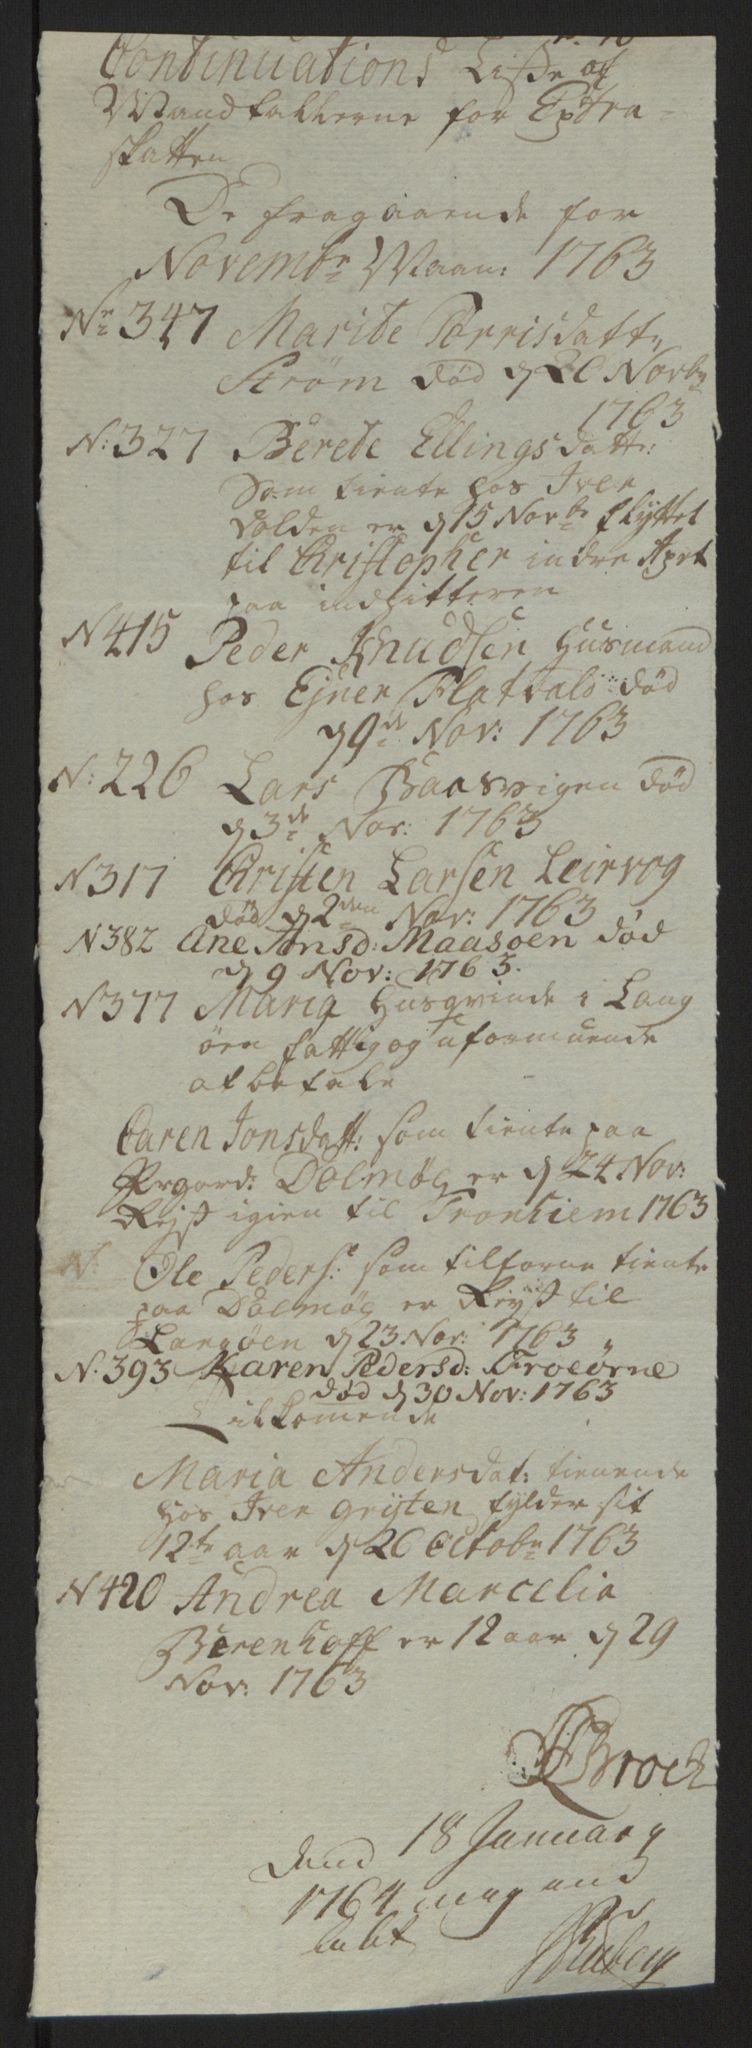 Continuations Liste af
Mandtallerne for Extra-
skatten
De fragaaende for
Novembr Maan: 1763
Nr 347 Maribe Torrisdattr
Strøm død d 20 Novbr
1763
N: 327 Berete Ellingsdattr:
som tiente hos Iver
Volden er d 15 Novbr flyttet
til Christopher indre
paa
N 415 Peder Knudsen Husmand
hos Ejner Flatvals død
d 9de Nov: 1763
N: 226 Lars Baasvigen død
d 3de Nov: 1763
N 317 Christen Larsen Leirvog
død d 2den Nov: 1763
N 382 Ane Jonsd: Maasøen død
d 9 Nov: 1763.
N 377 Maria Husqvinde i Lang
øen fattig og uformuende
at betale
Caren Jonsdatt: som tiente paa
Prgard: Dolmøe er d 24 Nov:
Rejst igien til Tronhiem 1763
N: Ole Peders: som tilforne tiente
paa Dolmøe er Reyst til
Langøen d 23 Nov: 1763
N: 393 Karen Pedersd: Froeørne
død d 30 Nov: 1763
Tilkomende
Maria Andersdat: tienende
hos Iver Grijten fylder sit
12te aar d 26 Octobr 1763
N 420 Andrea Marcelia
Berenhoff er 12 aar d 29
Nov: 1763
Brock
Dend 18 January
1764